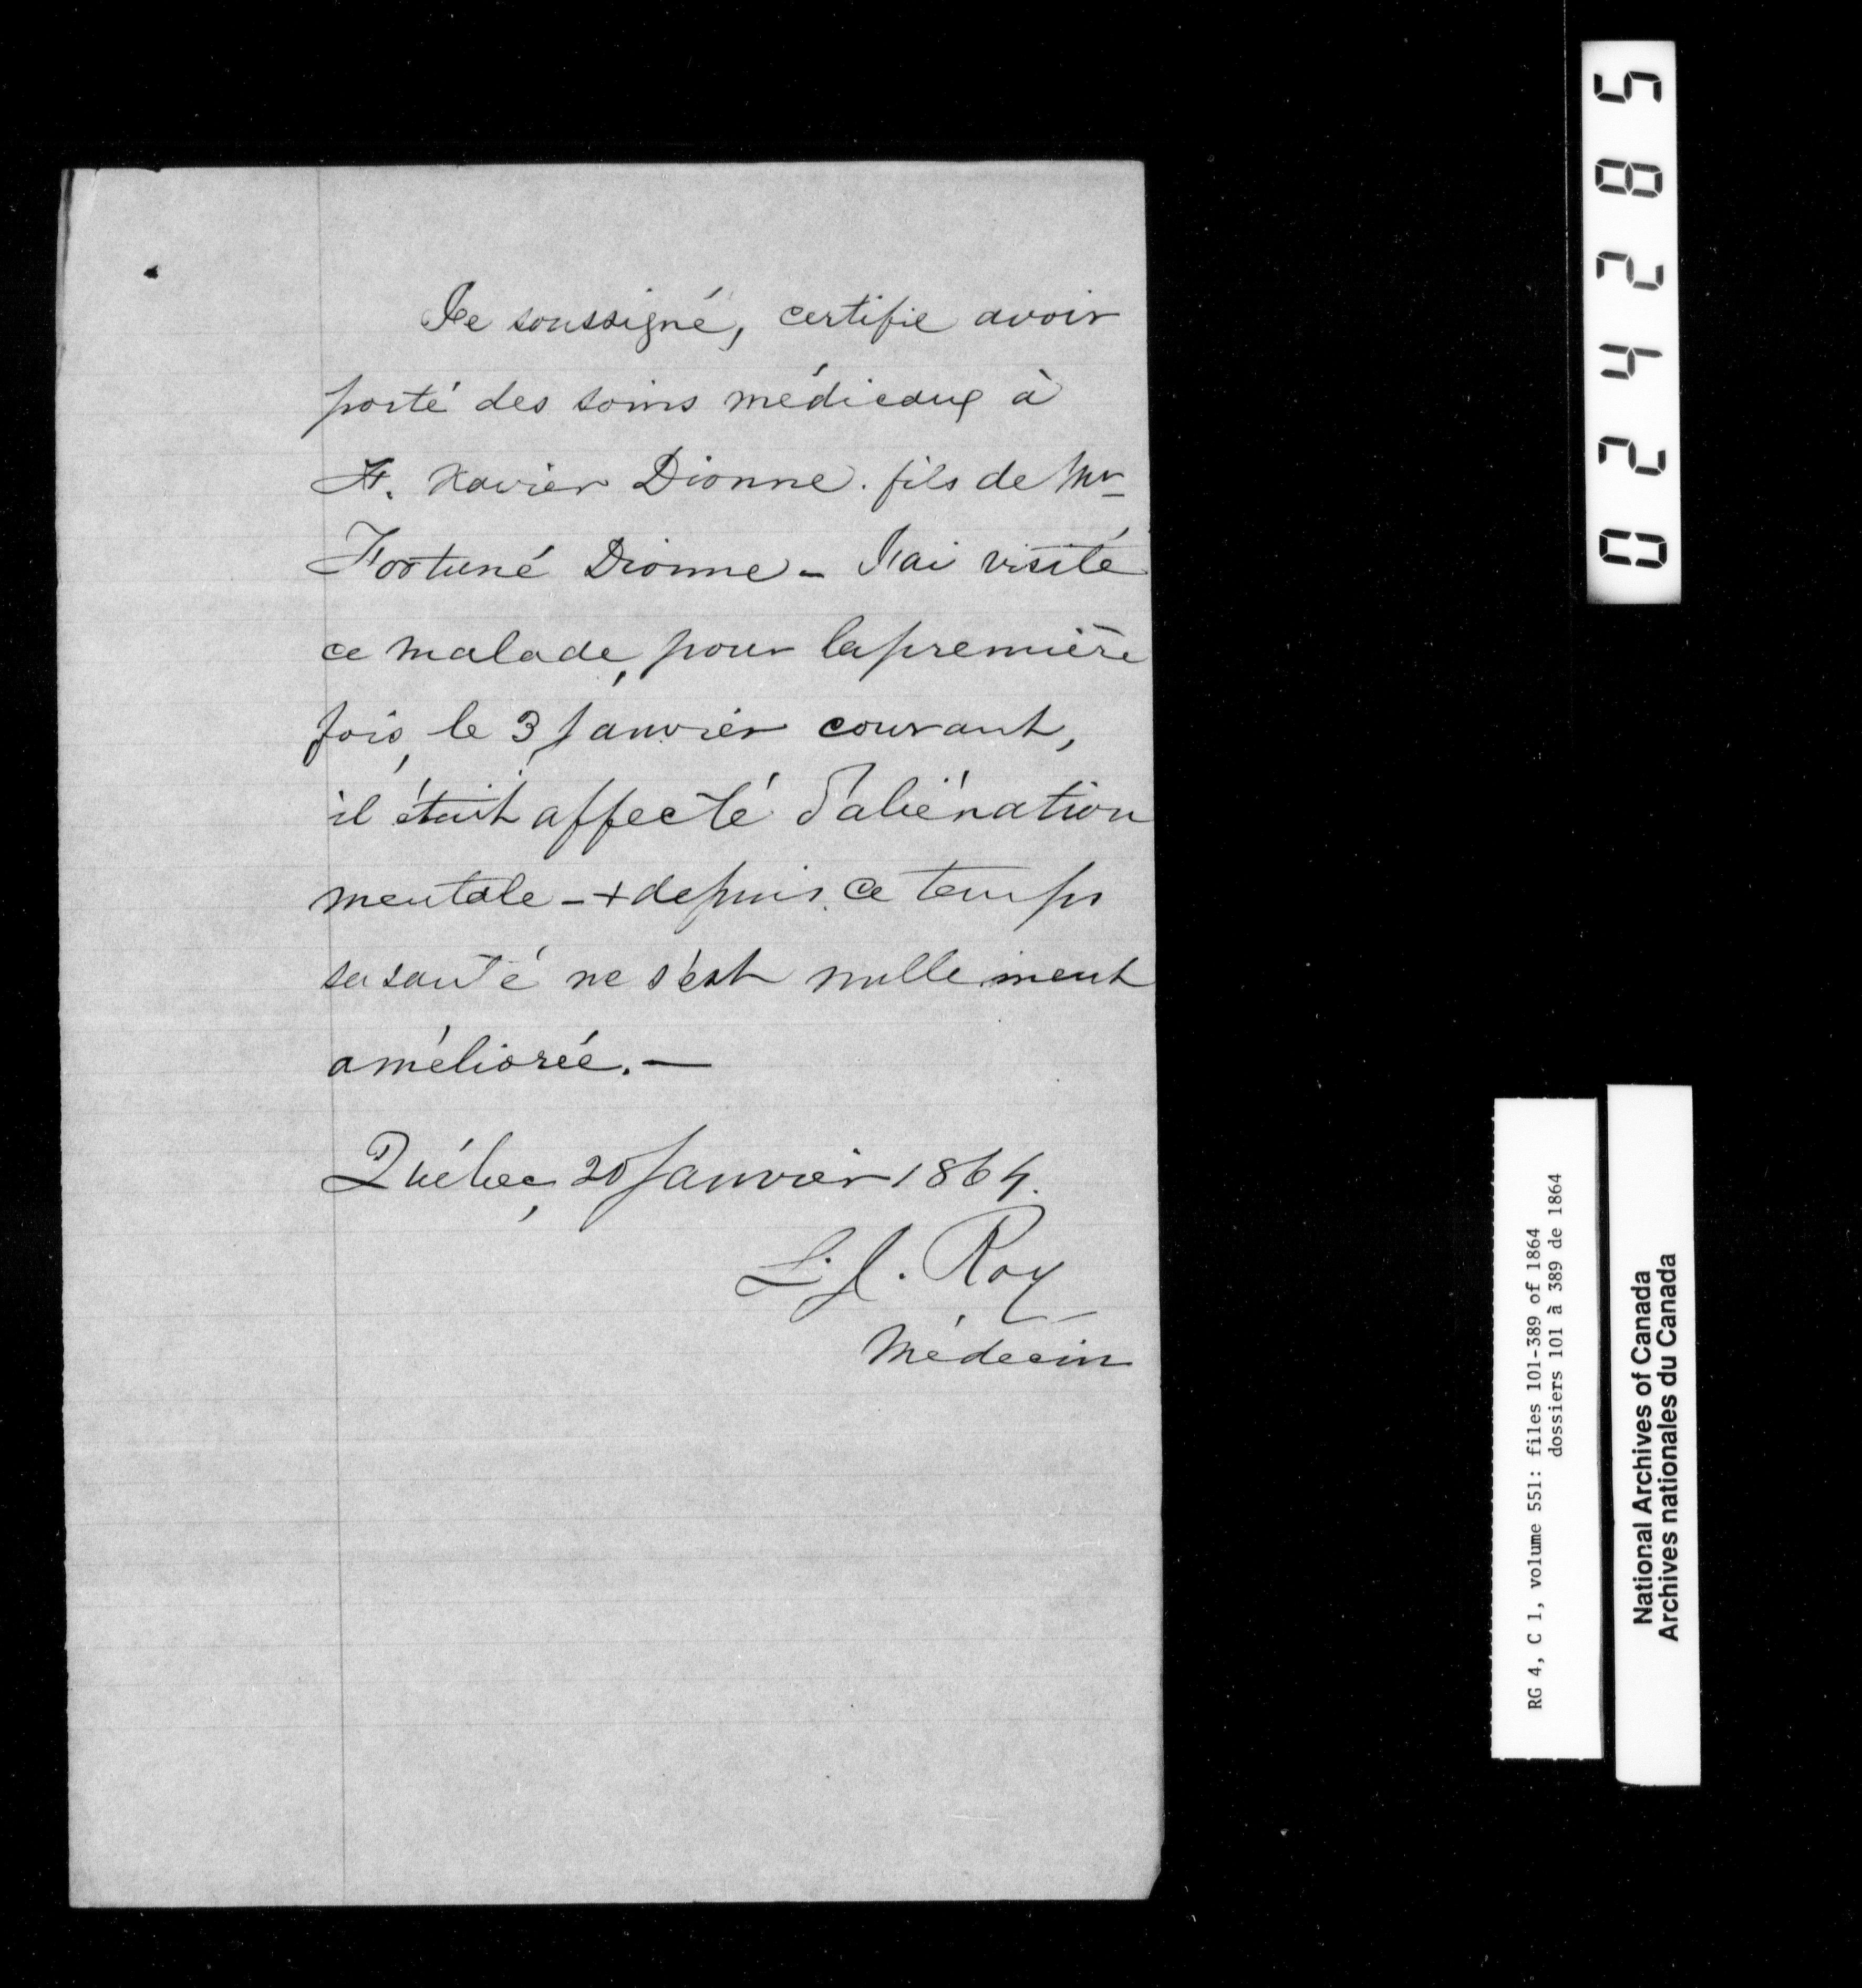 Je soussigné, certifie avoir
porté des soins médicaux à
F. Xavier Dionne. fils de Mr
Fortuné Dionne - J'ai visité
ce malade, pour la première
fois, le 3 Janvier courant,
il était affecté d'aliénation
mentale - + depuis ce temps
sa santé ne s'est nullement
améliorée. —
Québec, 20 Janvier 1864.
L. J. Roy
Médecin
024285
RG 4, C 1, volume 551: files 101-389 of 1864
dossiers 101 à 389 de 1864
National Archives of Canada
Archives nationales du Canada